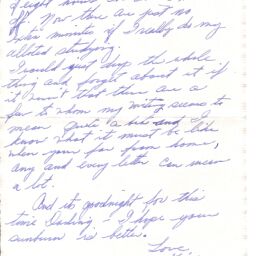 of eight hours
off. Now there are just no
extra minutes if I really do my
allotted studying.
I would just drop the whole
thing and forget about it if
it weren't that there are a
few to whom my writing seems to
mean quite a bit and I
know what it must be like
when your far from home,
any and every letter can mean
a lot.
And its goodnight for this
time Darling! I hope your
sunburn is better.
Love,